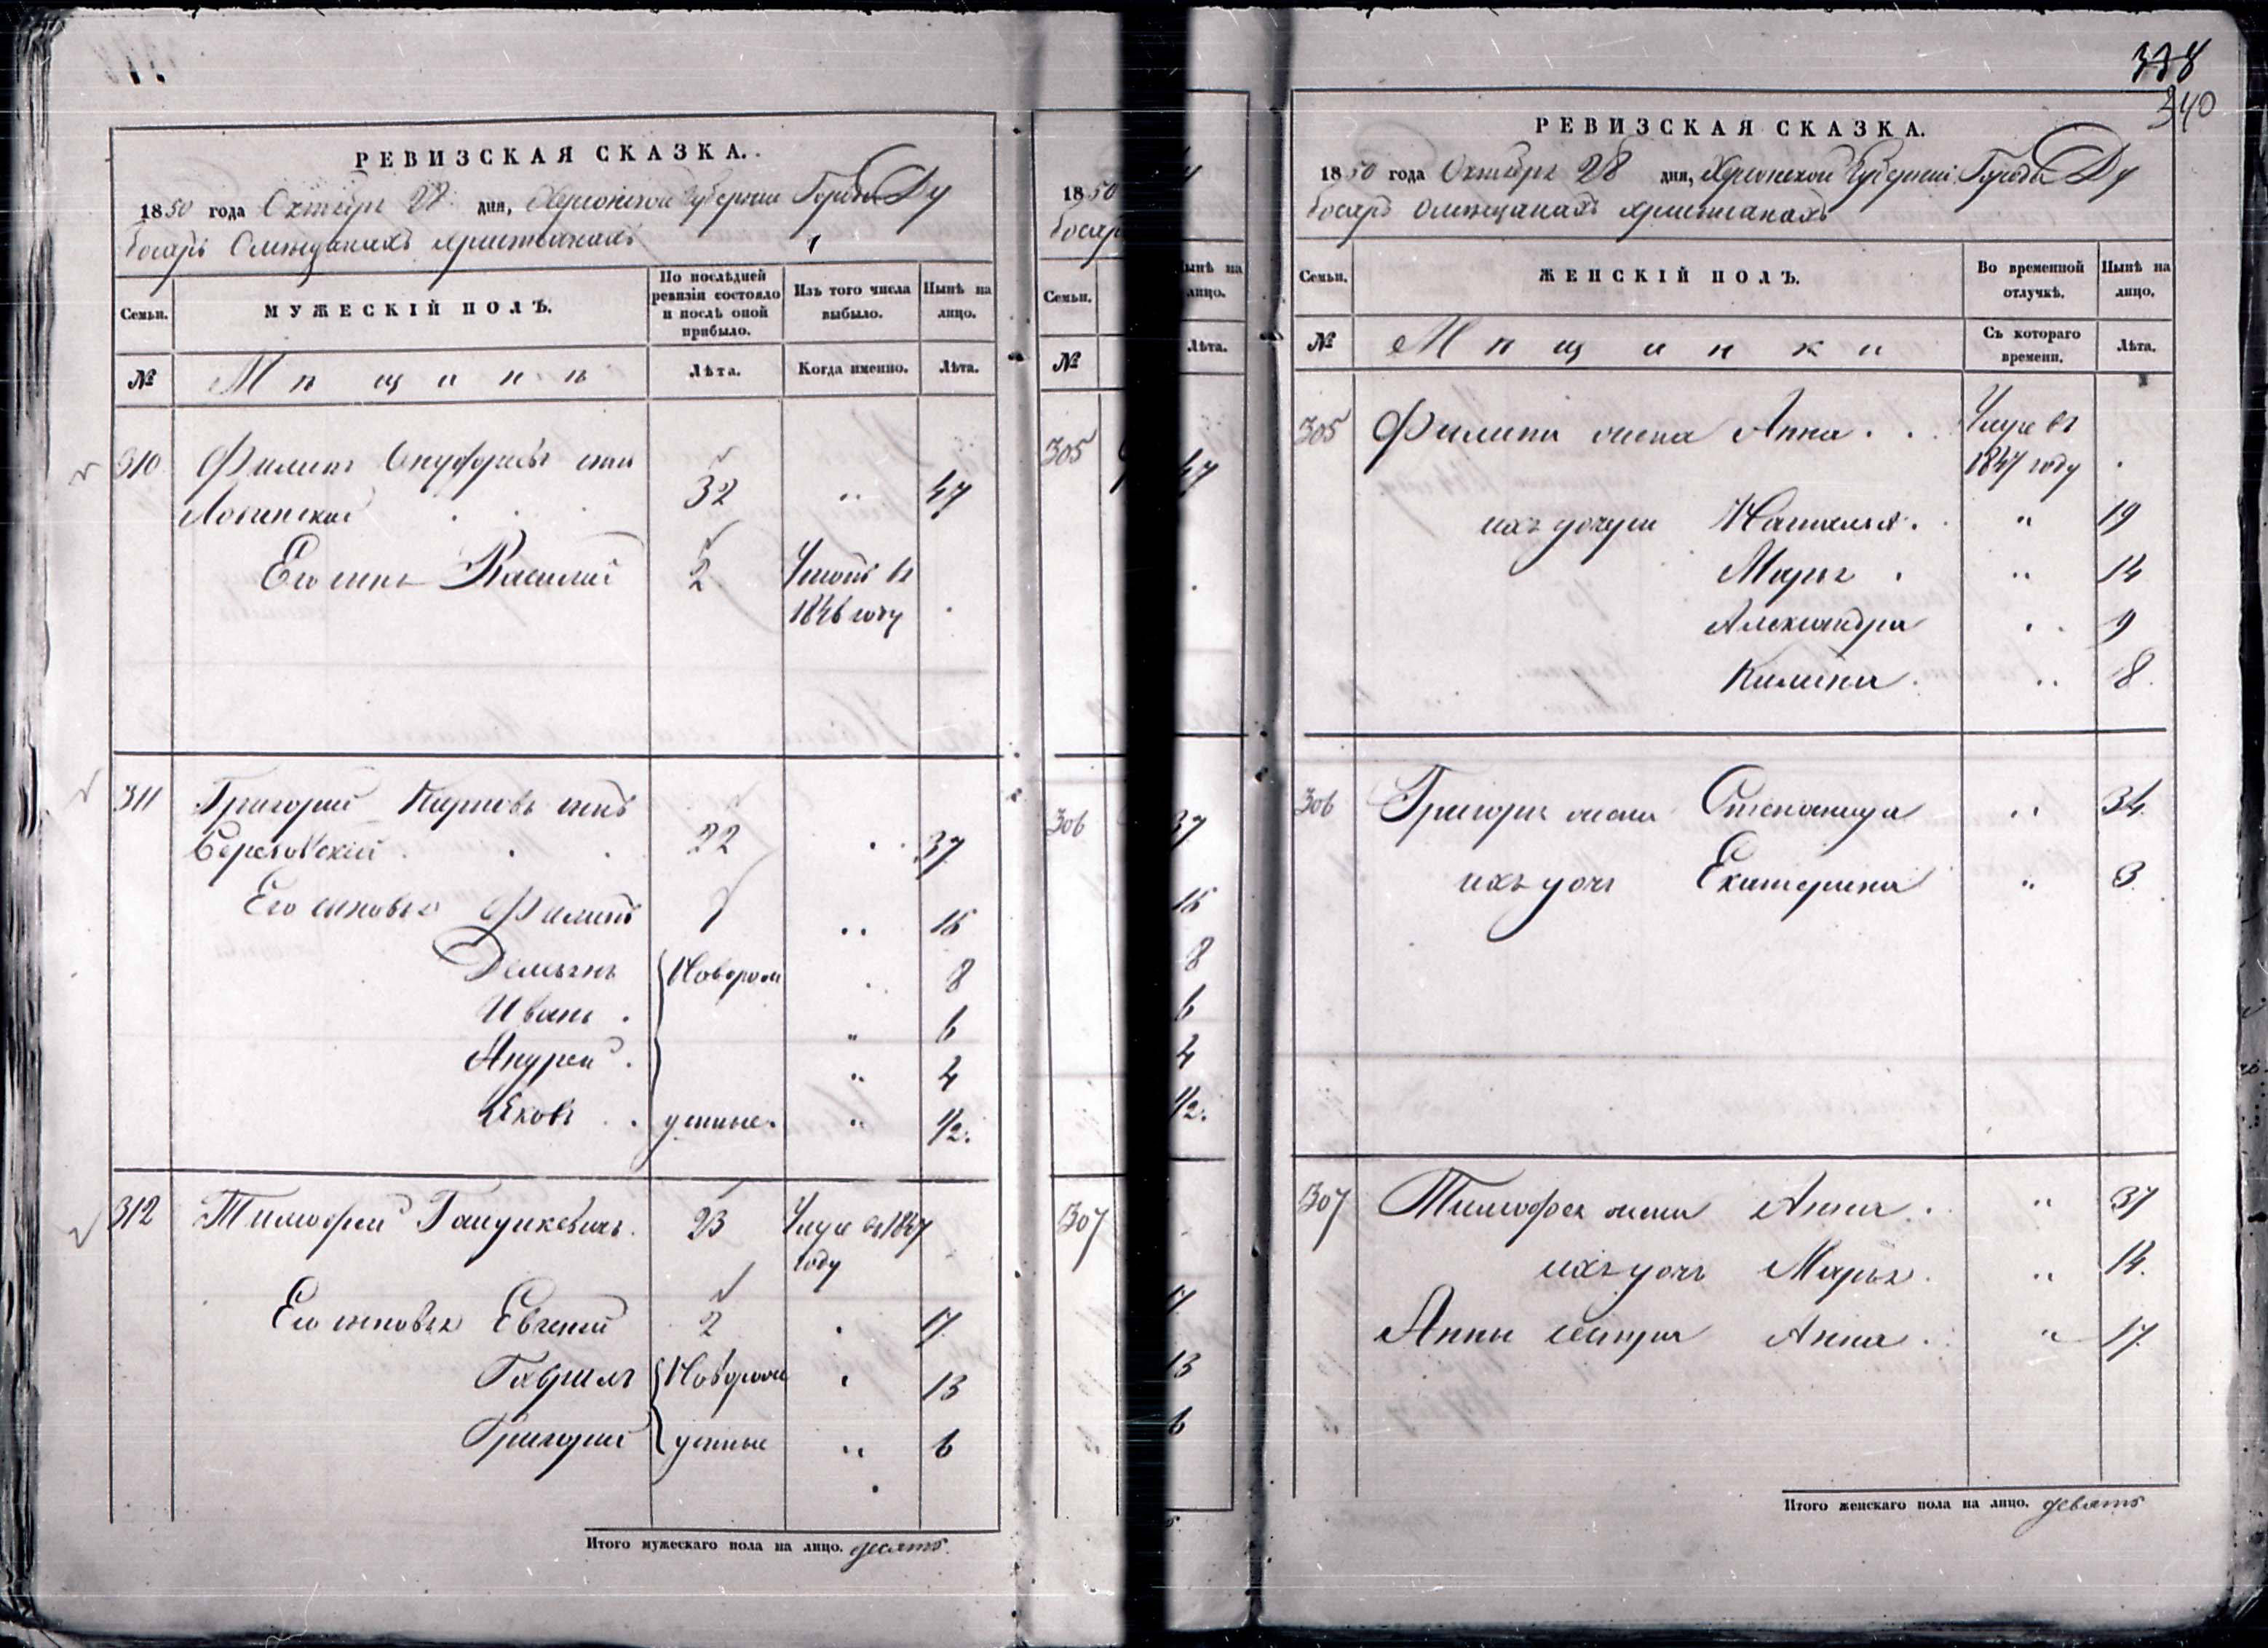 РЕВИЗСКАЯ СКАЗКА.
1850 года Октября 28 дня, Херсонской Губернии Города Ду
босаръ О мѣщанахъ христіанахъ
Семьи.
МУЖЕСКІЙ ПОЛЪ.
По послѣдней ревизіи состояло и послѣ оной прибыло.
Изъ того числа выбыло.
Нынѣ на лицо.
№
Мѣщане
Лѣта.
Когда именно.
Лѣта.
310 Филипъ Онуфріевъ сынъ
32 " 47
Его сынъ Василий 2 Умеръ въ
1846 году
311 Григорий Карповъ сынъ
Березовскій 22 37
Его сыновья Филипъ 15
Демьянъ Новорож 8
Иванъ 6
Андрей 4
Яковъ денные 1/2.
312 Тимофей 23 Умре въ 1847
году
Его сыновья Евгений 2 17
Гаврилъ Новорож 13
Григорий денные 6
Итого мужескаго пола на лицо. десять
1850
босар
Семьи.
№
305
306
307
Нынѣ на лицо.
Лѣта.
47
37
15
8
6
4
1/2.
17
13
6
338
340
РЕВИЗСКАЯ СКАЗКА.
1850 года Октября 28 дня, Херсонской Губерніи Города Ду
босаръ О мѣщанахъ христіанахъ
Семьи.
ЖЕНСКІЙ ПОЛЪ.
Во временной отлучкѣ.
Нынѣ на лицо.
№
Мѣщанки
Съ котораго времени.
Лѣта.
305 Филипа жена Анна Умре въ
1847 году
ихъ дочери Наталья " 19
Марья " 14
Александра 9
Килина 8
306 Григорія жена Степанида " 34
ихъ дочь Екатерина " 3
307 Тимофея жена Анна " 37
ихъ дочь Марья " 14
Анны сестра Анна " 17
Итого женскаго пола на лицо. девять